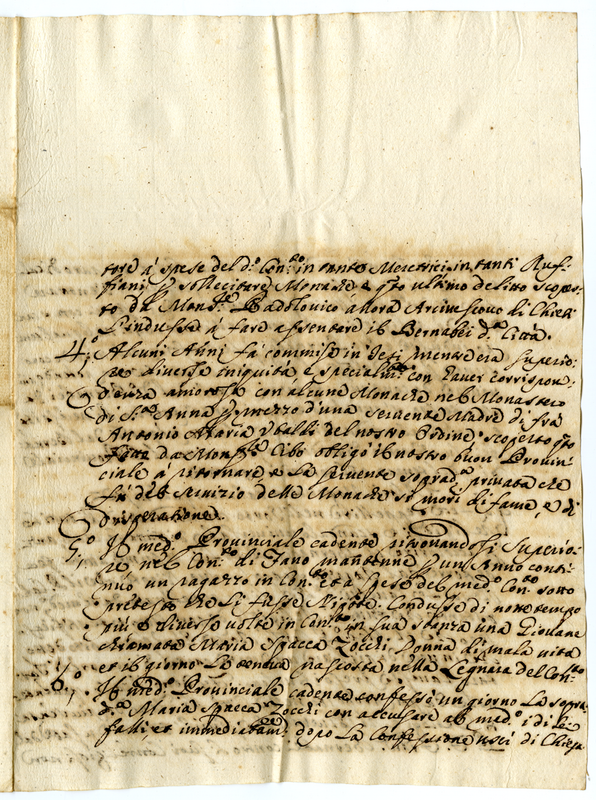 tore á spese del d.º Con.to in tante Meretrici, in tanti Ruf-
fiani, p sollecitare Monache e q.to ultimo delitto scoper-
to da Mons.re Radolovico allora Arcivescovo di Chieti
l'indusse á fare assentare il Bernabei d.ª Città.
4.º Alcuni Anni fá commise in Jesi mentre era Superio-
re diverse iniquità e specialm.te con haver corrispon-
denza amorosa con alcune Monache nel Monastero
di S.ta Anna p mezzo d'una servente Madre di frá
Antonio Maria balli del nostro Ordine, scoperto q.to
fatto da Mons.re Cibo obligò il nostro buon Provin-
ciale á ritornare e la servente soprad.ª privata che
fú del servizio delle Monache si morì di fame, e di
disperatione.
5.º Il med.º Provinciale cadente ritrovandosi Superio-
re nel Con.to di Fano mantenne p un Anno conti-
nuo un ragazzo in Con.to et á spese del med.º Con.to sotto
pretesto che li fusse Nipote. Condusse di notte tempo
più e diverse volte in Con.to in sua stanza una Giovane
chiamata Maria Spacca Zocchi Donna di mala vita
et il giorno la teneva nascosta nella Legnara del Con.to
6.º Il med.º Provinciale cadente confessò un giorno la sopra
d.ª Maria Spacca Zocchi con accusare al med.º i di lei
falli, et immediatam.e dopo la Confessione uscì di Chiesa